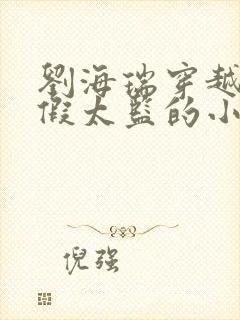 劉海瑞穿越
假太監的小
倪强